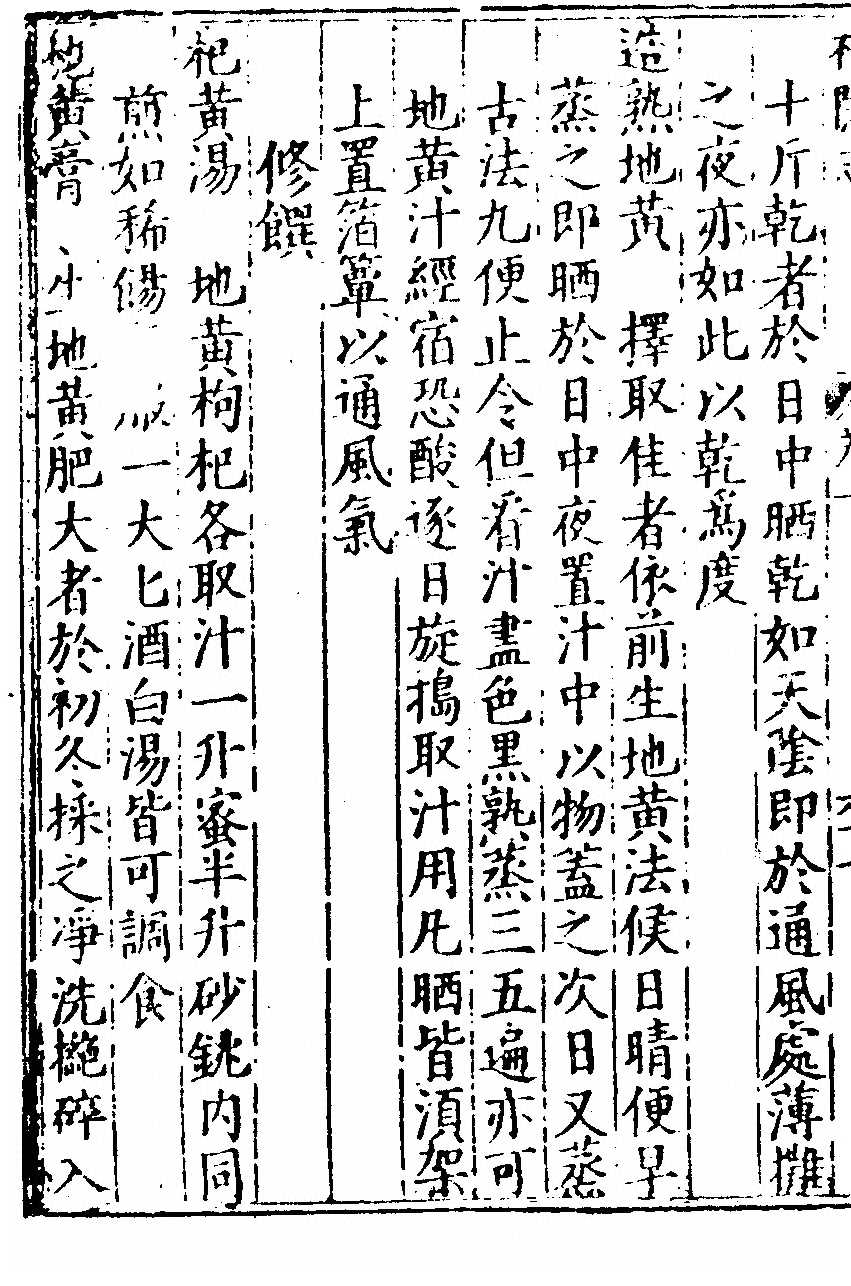 十斤乾者於日中晒乾如天陰即於通風處薄攤
之夜亦如此以乾爲度
造熟地黃　擇取佳者依前生地黃法候日晴便早
蒸之即晒於日中夜置汁中以物蓋之次日又蒸
古法九便止今但看汁盡色黒熟蒸三五遍亦可
地黃汁經宿恐酸逐日旋搗取汁用凡晒皆須架
上置箔簟以通風氣
修饌
杞黃湯　地黃枸杞各取汁一升蜜半升砂銚内同
煎如稀餳　一大匕酒白湯皆可調食
地黃膏　生地黃肥大者於初冬採之凈洗搥碎入